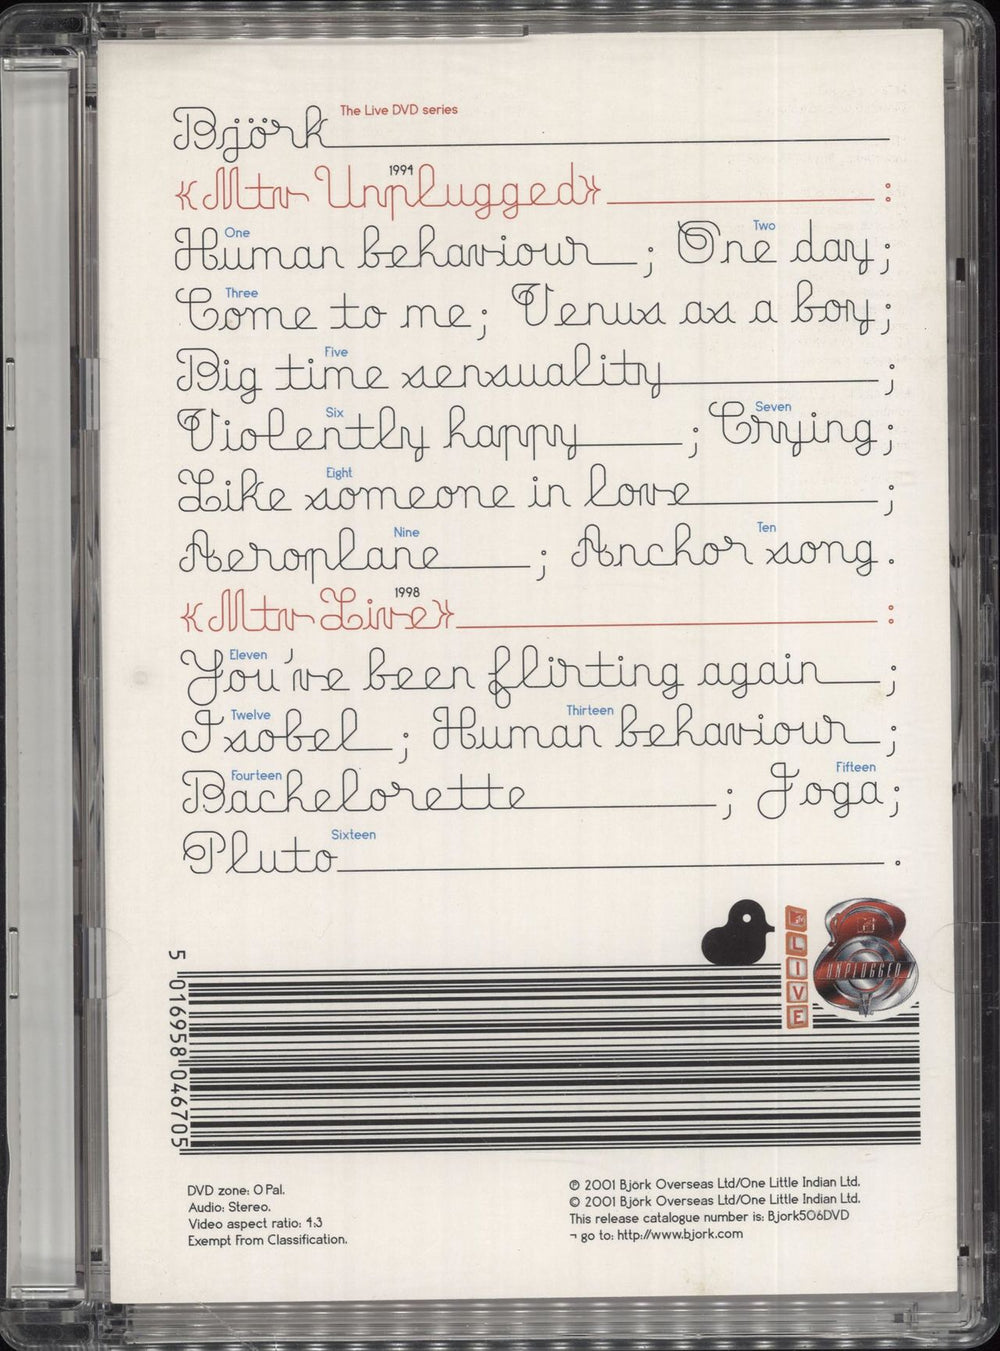 The Live DVD series
Björk
1994
«Mtv Unplugged» :
One Two
Human behaviour ; One day;
Three
Come to me; Venus as a boy;
Five
Big time sensuality ;
Six Seven
Violently happy ; Crying;
Eight
Like someone in love ;
Nine Ten
Aeroplane ; Anchor song.
1998
«Mtv Live» :
Eleven
You've been flirting again ;
Twelve Thirteen
Isobel ; Human behaviour ;
Fourteen Fifteen
Bachelorette ; Joga;
Sixteen
Pluto .
LIVE
UNPLUGGED
5 016958 046705
DVD zone: 0 Pal.
Audio: Stereo.
Video aspect ratio: 4:3
Exempt From Classification.
℗ 2001 Björk Overseas Ltd/One Little Indian Ltd.
© 2001 Björk Overseas Ltd/One Little Indian Ltd.
This release catalogue number is: Bjork506DVD
¬ go to: http://www.bjork.com